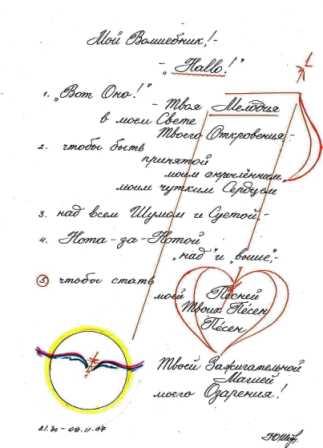 Мой Волшебник!-
- „Hallo!"-
1. „Вот Оно!"
- Твоя Мелодия
в моем Свете
Твоего Откровения,-
2. чтобы быть
принятой
моим
моим чутким Сердцем
3. над всем Шумом и Суетой,-
4. Нота-за-Нотой
„над" и „выше",-
5 чтобы стать
моей Песней
Твоих Песен
Песен
Твоей Зажигательной
Магией
моего Озарения!